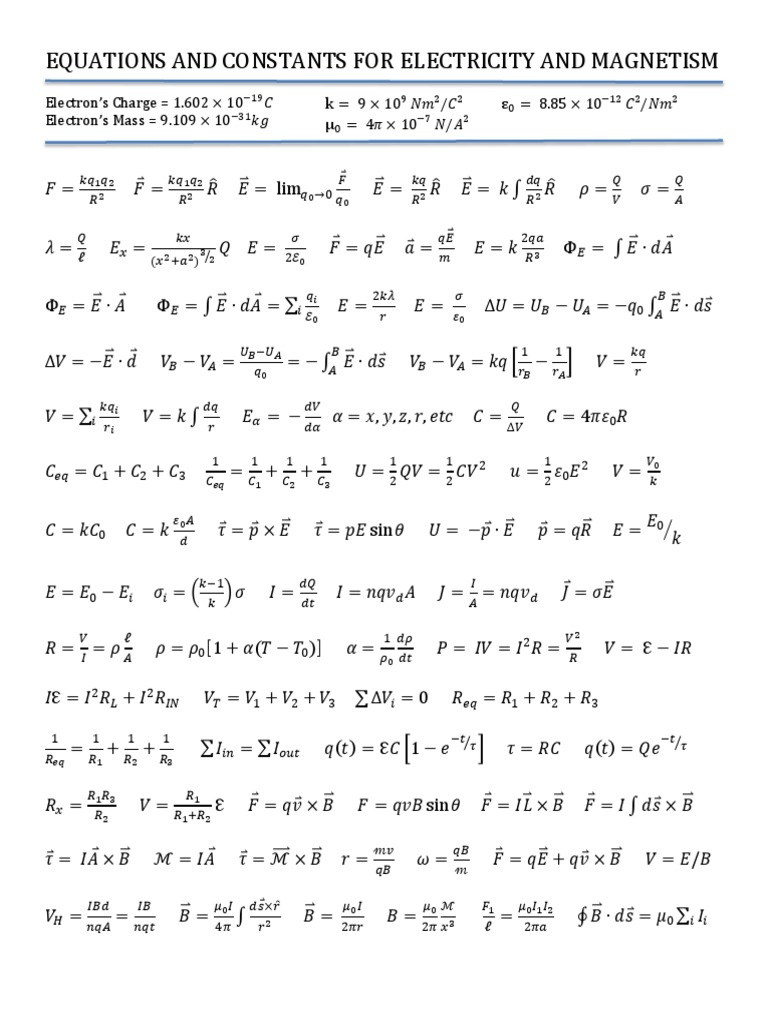 EQUATIONS AND CONSTANTS FOR ELECTRICITY AND MAGNETISM
Electron's Charge = 1.602 × 10⁻¹⁹C    k = 9 × 10⁹ Nm²/C²    ε₀ = 8.85 × 10⁻¹² C²/Nm²
Electron's Mass = 9.109 × 10⁻³¹kg    μ₀ = 4π × 10⁻⁷ N/A²
F = kq₁q₂/R²    F⃗ = kq₁q₂/R² R̂    E⃗ = lim_{q₀→0} F⃗/q₀    E⃗ = kq/R² R̂    E⃗ = k ∫ dq/R² R̂    ρ = Q/V    σ = Q/A
λ = Q/ℓ    Eₓ = kx/(x²+a²)^{3/2} Q    E = σ/2Ɛ₀    F⃗ = qE⃗    a⃗ = qE⃗/m    E = k 2qa/R³    Φ_E = ∫ E⃗ · dA⃗
Φ_E = E⃗ · A⃗    Φ_E = ∫ E⃗ · dA⃗ = ∑ᵢ qᵢ/Ɛ₀    E = 2kλ/r    E = σ/ε₀    ΔU = U_B − U_A = −q₀ ∫_A^B E⃗ · ds⃗
ΔV = −E⃗ · d⃗    V_B − V_A = (U_B−U_A)/q₀ = − ∫_A^B E⃗ · ds⃗    V_B − V_A = kq [1/r_B − 1/r_A]    V = kq/r
V = ∑ᵢ kqᵢ/rᵢ    V = k ∫ dq/r    E_α = − dV/dα    α = x, y, z, r, etc    C = Q/ΔV    C = 4πε₀R
C_eq = C₁ + C₂ + C₃    1/C_eq = 1/C₁ + 1/C₂ + 1/C₃    U = 1/2 QV = 1/2 CV²    u = 1/2 ε₀E²    V = V₀/k
C = kC₀    C = k ε₀A/d    τ⃗ = p⃗ × E⃗    τ⃗ = pE sin θ    U = −p⃗ · E⃗    p⃗ = qR⃗    E = E₀/k
E = E₀ − Eᵢ    σᵢ = ((k−1)/k) σ    I = dQ/dt    I = nqv_dA    J = I/A = nqv_d    J⃗ = σE⃗
R = V/I = ρ ℓ/A    ρ = ρ₀[1 + α(T − T₀)]    α = 1/ρ₀ dρ/dt    P = IV = I²R = V²/R    V = Ɛ − IR
IƐ = I²R_L + I²R_IN    V_T = V₁ + V₂ + V₃    ∑ ΔVᵢ = 0    R_eq = R₁ + R₂ + R₃
1/R_eq = 1/R₁ + 1/R₂ + 1/R₃    ∑ I_in = ∑ I_out    q(t) = ƐC [1 − e^{−t/τ}]    τ = RC    q(t) = Qe^{−t/τ}
Rₓ = R₁R₃/R₂    V = R₁/(R₁+R₂) Ɛ    F⃗ = qv⃗ × B⃗    F = qvB sin θ    F⃗ = IL⃗ × B⃗    F⃗ = I ∫ ds⃗ × B⃗
τ⃗ = IA⃗ × B⃗    ℳ = IA⃗    τ⃗ = ℳ⃗ × B⃗    r = mv/qB    ω = qB/m    F⃗ = qE⃗ + qv⃗ × B⃗    V = E/B
V_H = IBd/nqA = IB/nqt    B⃗ = μ₀I/4π ∫ ds⃗×r̂/r²    B⃗ = μ₀I/2πr    B = μ₀/2π ℳ/x³    F₁/ℓ = μ₀I₁I₂/2πa    ∮ B⃗ · ds⃗ = μ₀ ∑ᵢ Iᵢ